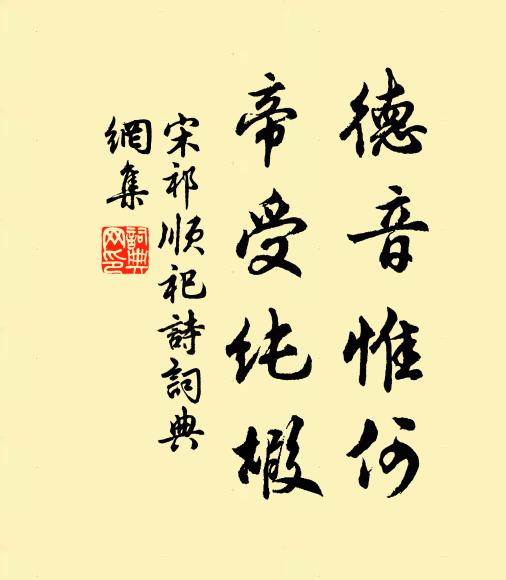 德音惟何
帝受纯嘏
宋祁順祀詩詞典
網集
詞典
网印